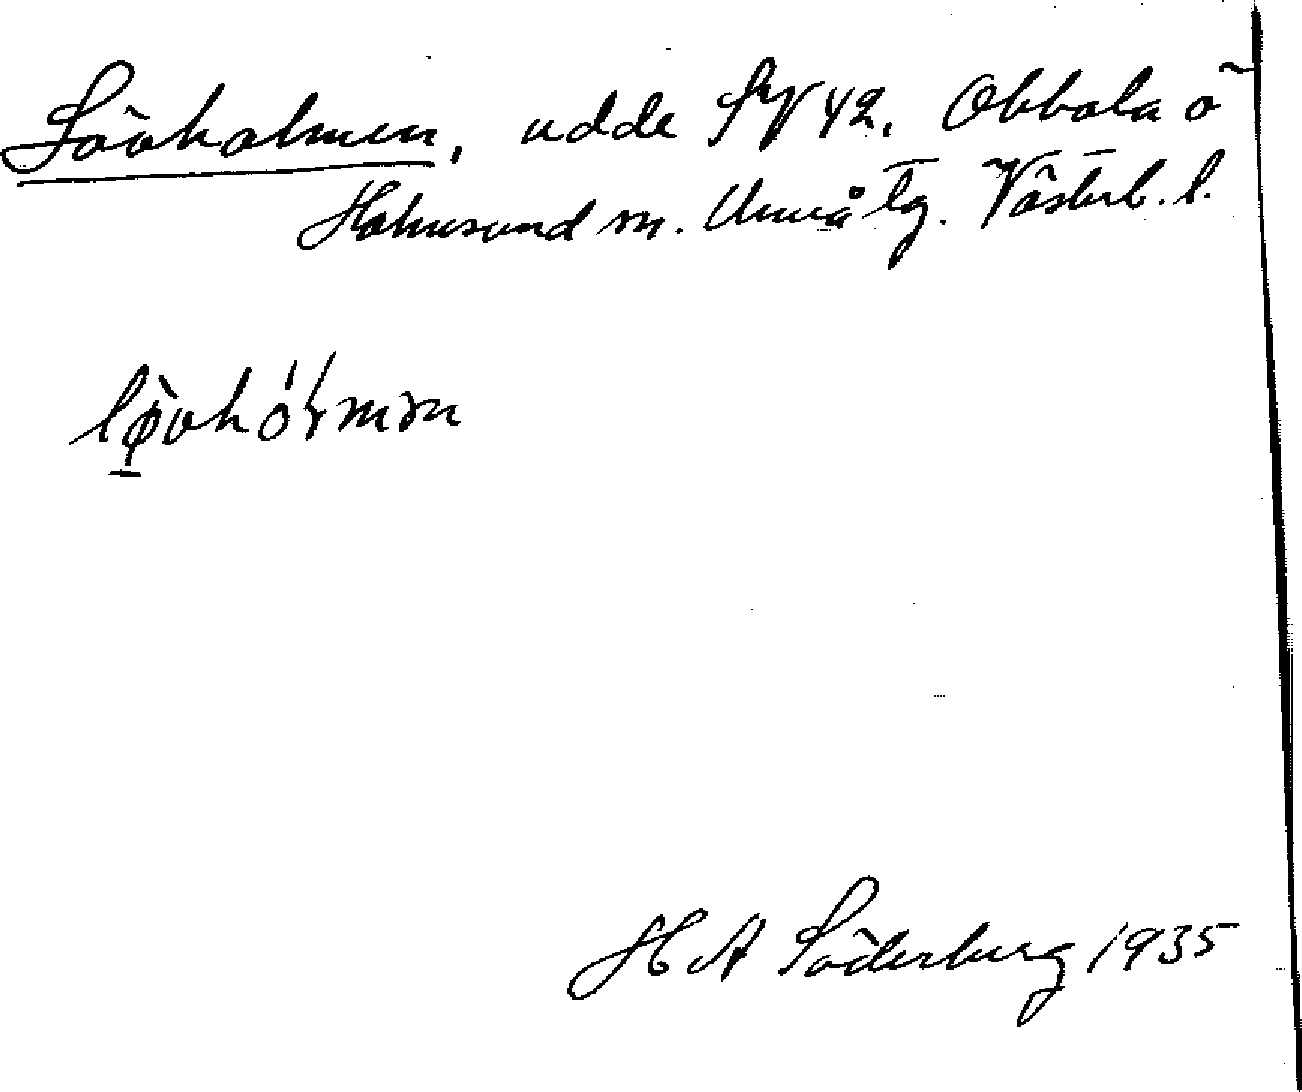 Lövholmen, udde SV 42. Obbola ö
Holmsund sn. Umeå tg. Västerb. l.
HA Söderberg 1935